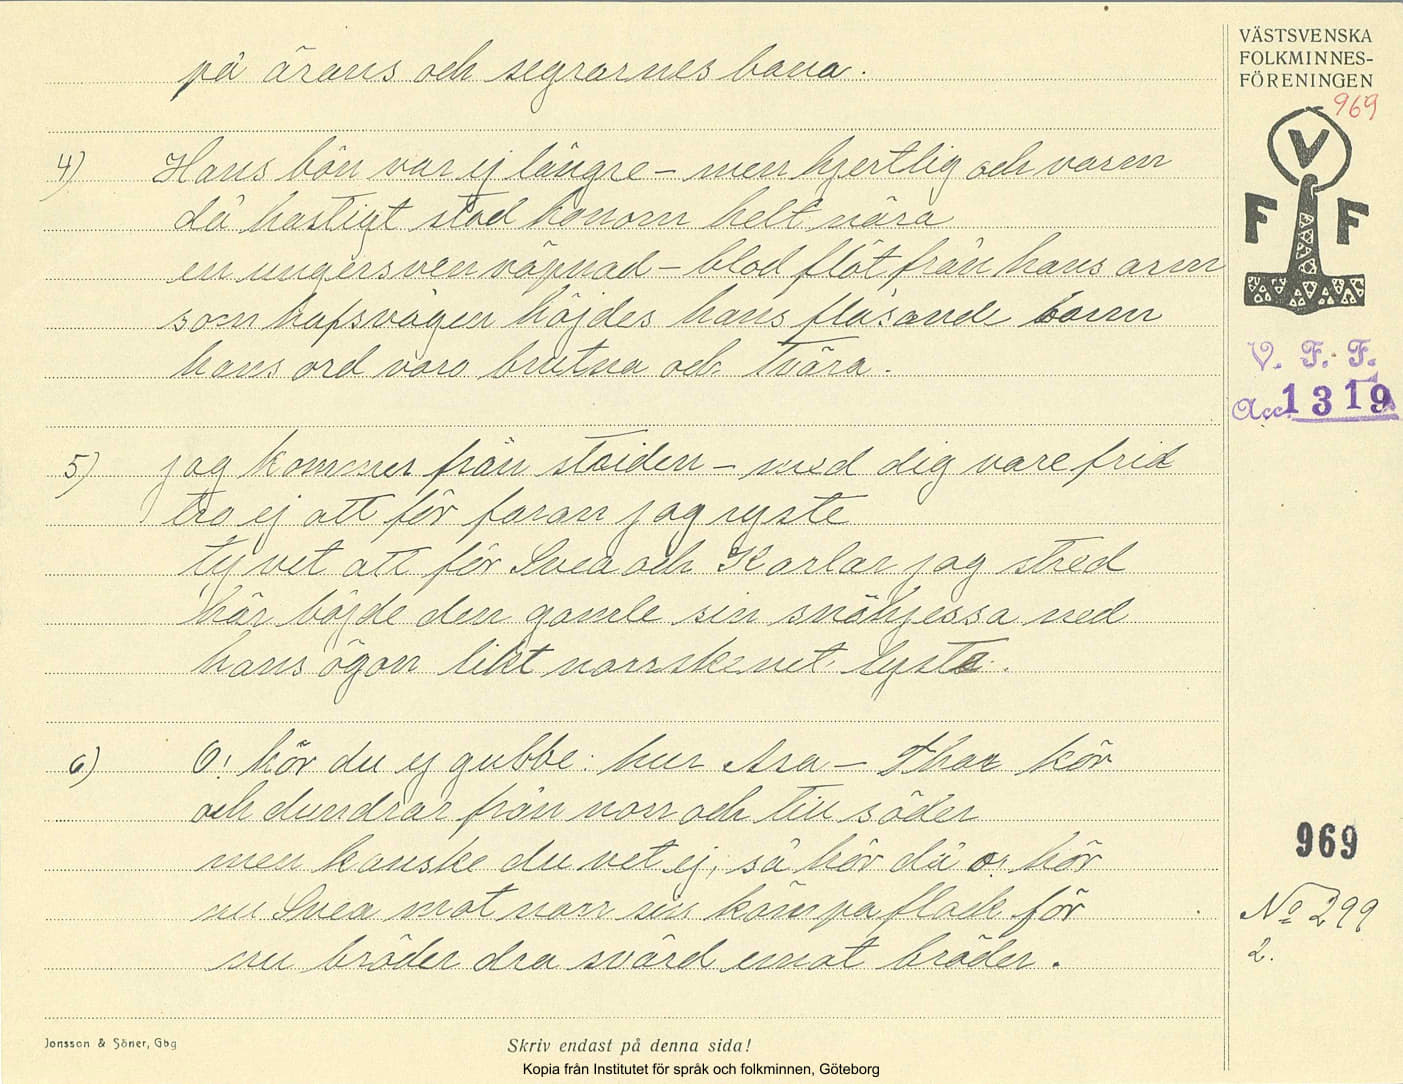 på ärans och segrarnes bana.
4) Hans bön var ej längre – men hjertlig och varm
då hastigt stod honom helt nära
en ungersven väpnad – blod flöt från hans arm
som hafsvågen höjdes hans flåsande barm
hans ord voro brutna och tvära.
5) jag kommer från striden – med dig vare frid
tro ej att för faran jag ryste
ty vet att för Svea och Karlar jag stred
här böjde den gamle sin snöhjessa ned
hans ögon likt norrskenet lyste.
6) O! hör du ej gubbe: hur Asa – Thor kör
och dundrar från norr och till söder
men kanske du vet ej, så hör då o! hör
nu Svea mot norr sin för
nu bröder dra svärd emot bröder.
VÄSTSVENSKA
FOLKMINNES-
FÖRENINGEN
969
V
F F
V. F. F.
Acc. 1319
969
No 299
2.
Jonsson & Söner, Gbg
Skriv endast på denna sida!
Kopia från Institutet för språk och folkminnen, Göteborg